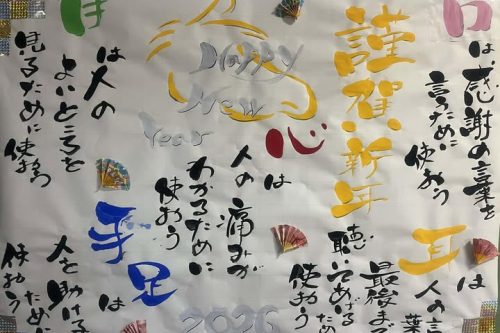 口は
感謝の言葉を
言うために
使おう
謹賀新年
耳は
人の
言葉
最後まで
聴いてあげる
ために
使おう
Happy
New
Year
心は
人の痛みが
わかるために
使おう
2026
目は人の
よいところを
見るために使おう
手足は
人を助ける
ために
使おう